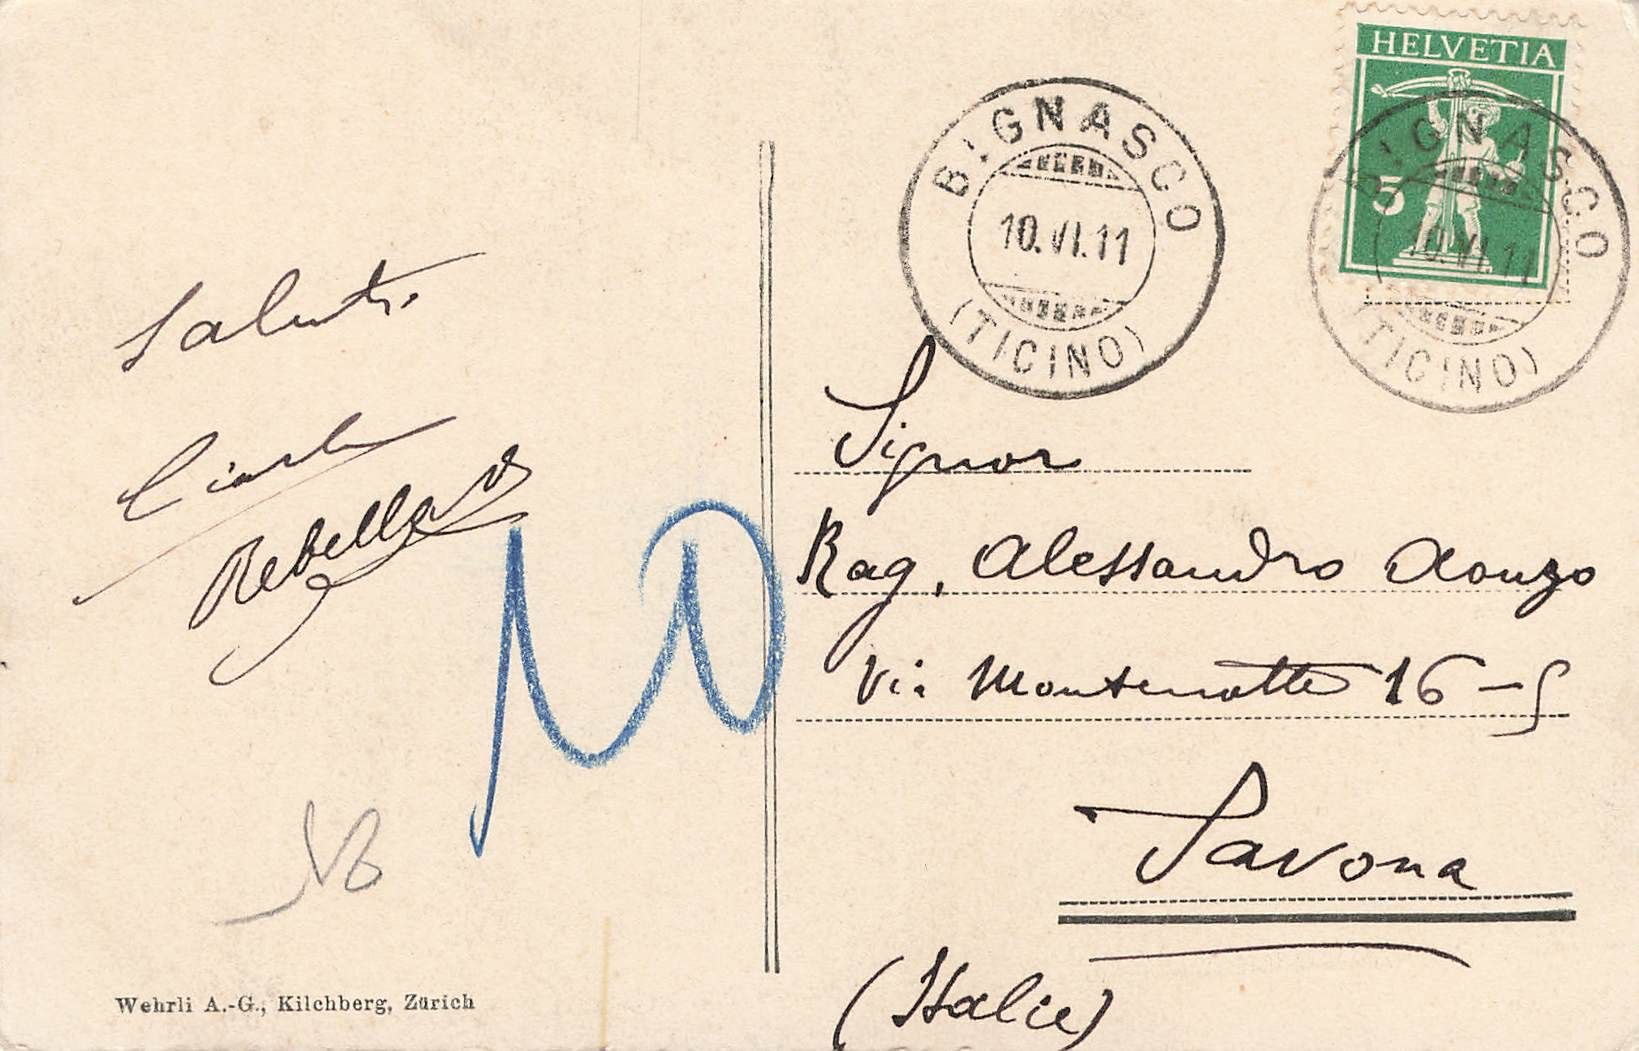 HELVETIA
5
BIGNASCO
10.VI.11
(TICINO)
BIGNASCO
10.VI.11
(TICINO)
Saluti
Rebella
Signor
Rag. Alessandro Aonzo
Via Montenotte 16-5
Savona
(Italie)
Wehrli A.-G., Kilchberg, Zürich